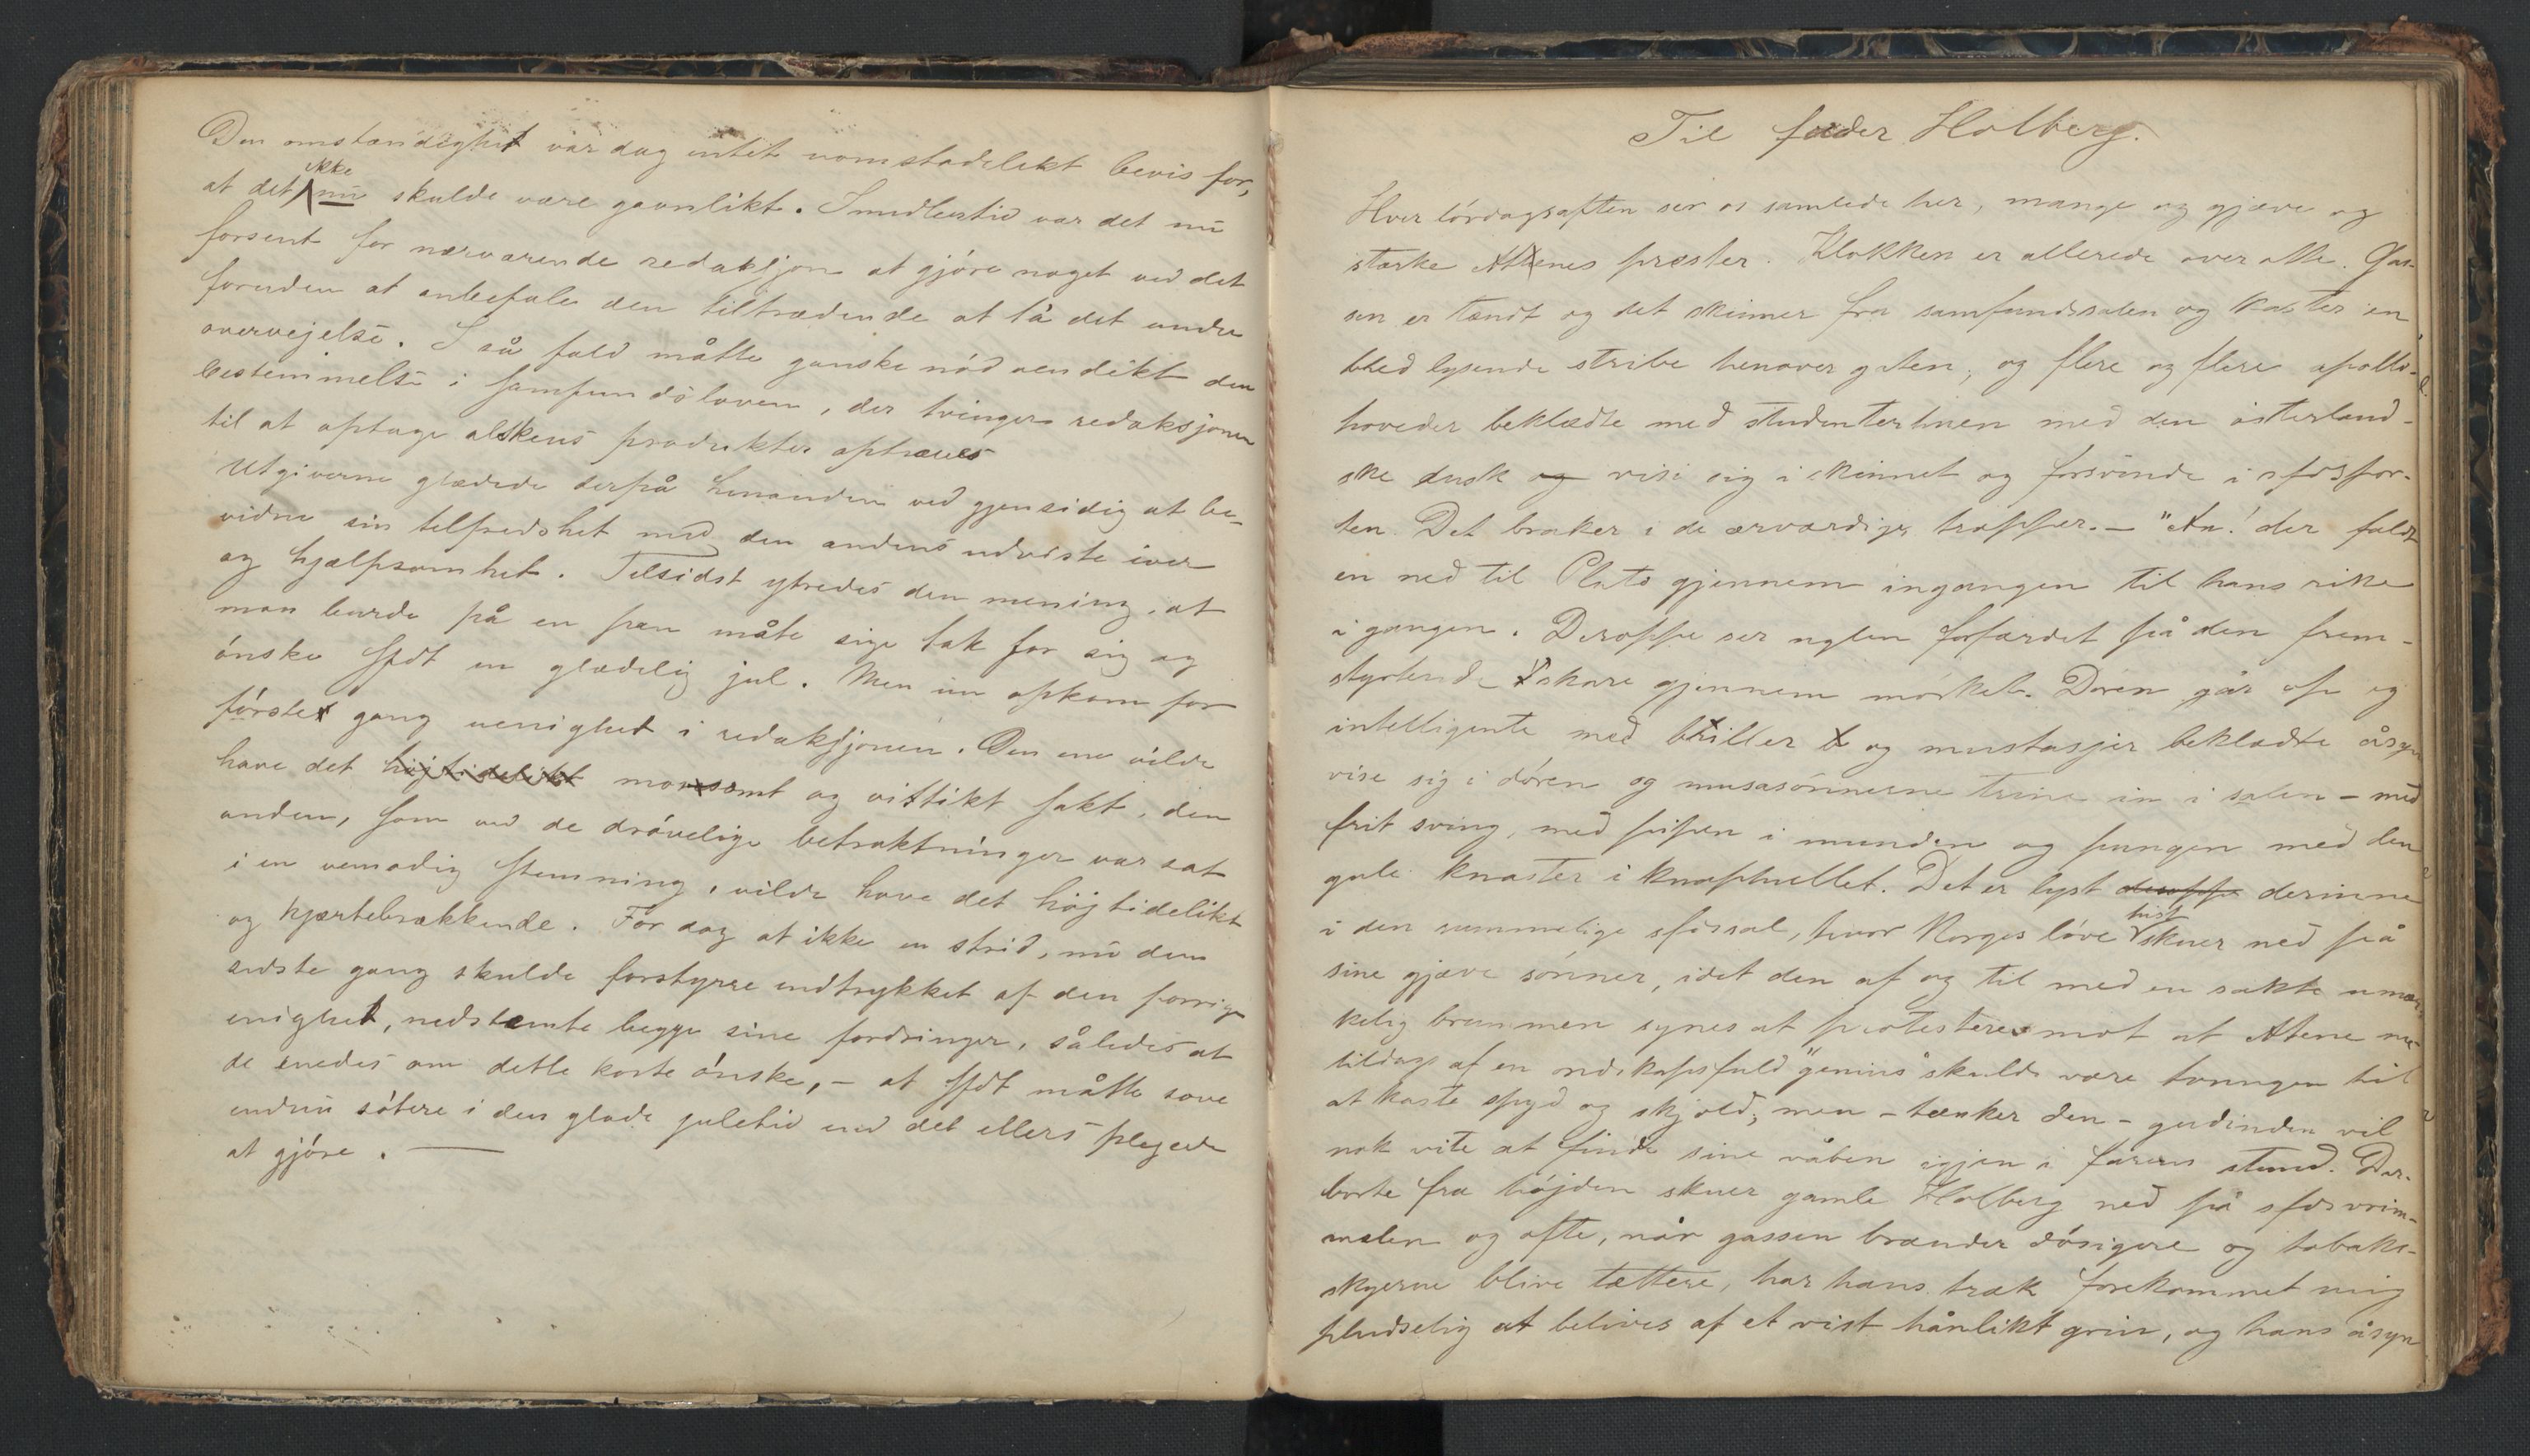 Den omstændighet var dog intet uomstødelikt bevis for,
at det ikke nu skulde være gavnlikt. Imidlertid var det nu
forsent for nærværende redaksjon at gjöre noget ved det
foruden at anbefale den tiltrædende at ta det under
overvejelse. I så fald måtte ganske nödvendikt den
bestemmelse i samfundsloven, der tvinger redaksjonen
til at optage alskens produkter ophæves
Utgiverne glædede derpå hinanden ved gjensidig at be-
vidne sin tilfredshet med den andens udviste iver
og hjælpsomhet. Tilsidst ytredes den mening, at
man burde på en pæn måte sige tak for sig og
önske Sfdt en glædelig jul. Men nu opkom for
förste gang uenighet i redaksjonen. Den ene vilde
have det höjtidelikt morsomt og vittikt sakt, den
anden, som ved de drövelige betraktninger var sat
i en vemodig stemning, vilde have det höjtidelikt
og hjærtebrækkende. For dog at ikke en strid, nu den
sidste gang skulde forstyrre indtrykket af den forrige
enighet, nedstemte begge sine fordringer, således at
de enedes om dette korte önske, – at Sfdt måtte sove
endnu sötere i den glade juletid end det ellers plejede
at gjöre. —
Til fader Holberg.
Hver lördagsaften ser os samlede her, mange og gjæve og
stærke Atenes præster. Klokken er allerede over otte. Gas-
sen er tændt og det skinner fra samfundssalen og kaster en
bled lysende stribe henover gaten, og flere og flere apollo-
hoveder beklædte med studenterhuen med den österland-
ske dusk og vise sig i skinnet og forsvinde i sfdspor-
ten. Det braker i de ærværdige trapper. – "Au! der faldt
en ned til Plato gjennem ingangen til hans rike
i gangen. Deroppe ser uglen forfærdet på den frem-
styrtende skare gjennem mörket. Dören går op og
intelligente med briller og mustasjer beklædte åsyn
vise sig i dören og musasönnerne trine in i salen – med
frit sving, med pipen i munden og pungen med den
gule knaster i knaphullet. Det er lyst deroppe derinne
i den rummelige sfdssal, hvor Norges löve hist skuer ned på
sine gjæve sönner, idet den af og til med en sakte umær-
kelig brummen synes at protestere mot at Atene nu
tildags af en ondskapsfuld "genius" skulde være tvungen til
at kaste spyd og skjold; men – tænker den – gudinden vil
nok vite at finde sine våben igjen i farens stund. Der-
borte fra höjden skuer gamle Holberg ned på sfdsvrim-
melen og ofte, når gassen brænder dösigere og tobaks-
skyerne blive tættere, har hans træk forekommet mig
pludselig at belives af et vist hånlikt grin, og hans åsyn